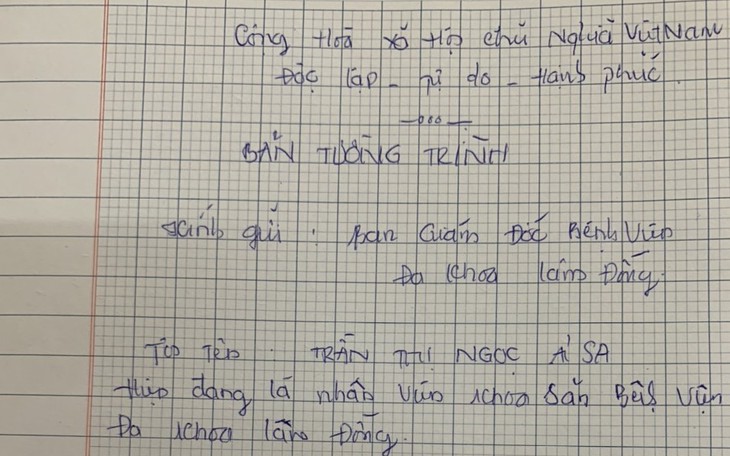 Cộng Hoà Xã Hội Chủ Nghĩa Việt Nam
Độc lập - Tự do - Hạnh phúc
BẢN TƯỜNG TRÌNH
Kính gửi : Ban Giám Đốc Bệnh Viện
Đa Khoa Lâm Đồng.
Tôi Tên : TRẦN THỊ NGỌC Á SA
Hiện đang là nhân viên khoa Sản Bệnh Viện
Đa khoa Lâm Đồng.